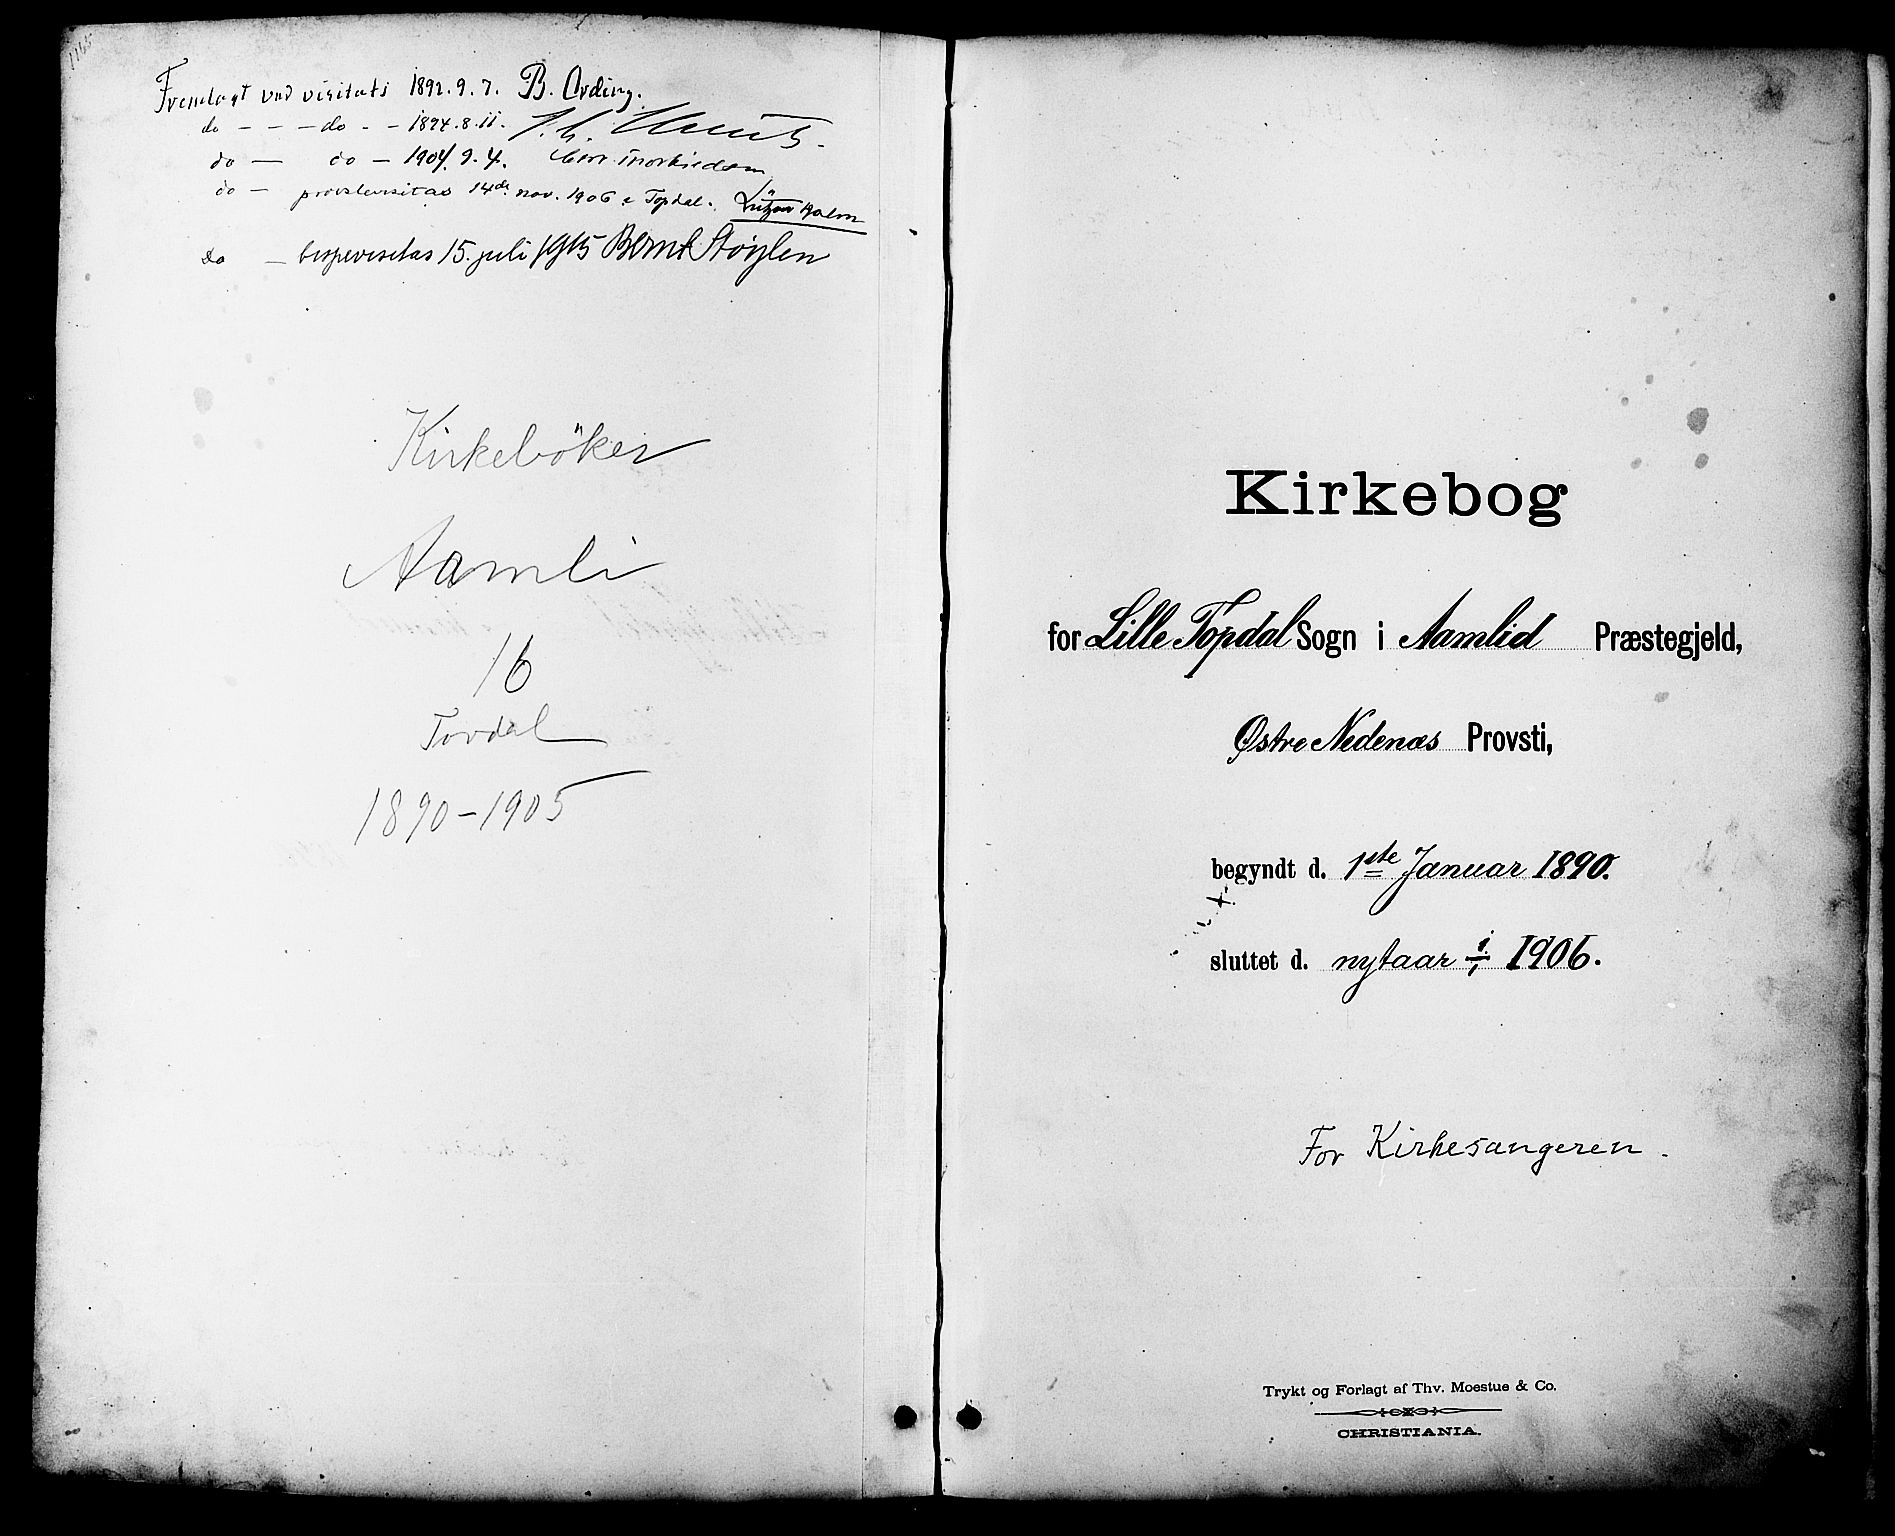 1165
Fremlagt ved visitats 1892.9.7. B. Ording.
do - - - do - - 1894.8.11.
do — do — 1904.9.4.
do — provstevisitas 14de nov. 1906 i Topdal. Lützow Holm
do — bispevisitas 15. juli 1915 Bernt Støylen
Kirkebøker
Aamli
16
Tovdal
1890-1905
Kirkebog
for Lille Topdal Sogn i Aamlid Præstegjeld,
Østre Nedenæs Provsti,
begyndt d. 1ste Januar 1890.
sluttet d. nytaar 1/1 1906.
For Kirkesangeren.
Trykt og Forlagt af Thv. Moestue & Co.
CHRISTIANIA.